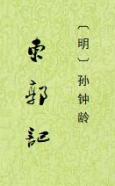 〔明〕孙钟龄
東郭記